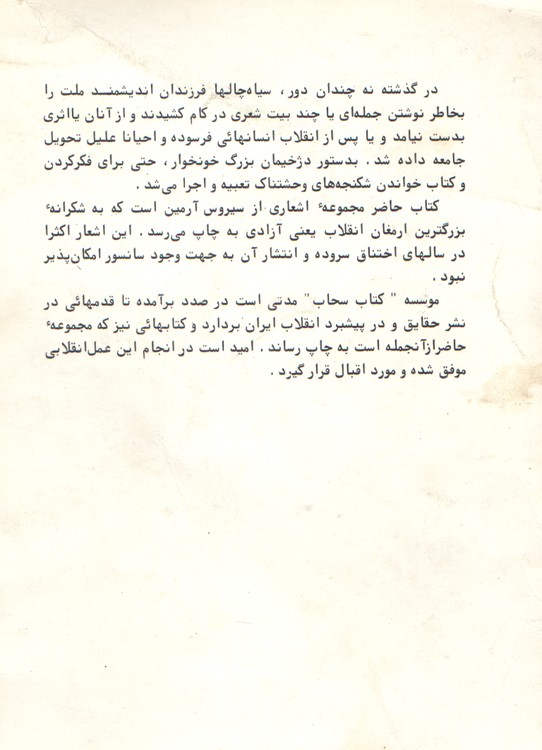 در گذشته نه چندان دور، سیاه‌چالها فرزندان اندیشمنـد ملت را
بخاطر نوشتن جمله‌ای یا چند بیت شعری در کام کشیدند و از آنان یااثری
بدست نیامد و یا پس از انقلاب انسانهائی فرسوده و احیانا علیل تحویل
جامعه داده شد . بدستور دژخیمان بزرگ خونخوار ، حتی برای فکرکردن
و کتاب خواندن شکنجه‌های وحشتناک تعبیه و اجرا می‌شد .
کتاب حاضر مجموعهٔ اشعاری از سیروس آرمین است که به شکرانهٔ
بزرگترین ارمغان انقلاب یعنی آزادی به چاپ می‌رسد . این اشعار اکثرا
در سالهای اختناق سروده و انتشار آن به جهت وجود سانسور امکان‌پذیر
نبود .
موسسه " کتاب سحاب" مدتی است در صدد برآمده تا قدمهائی در
نشر حقایق و در پیشبرد انقلاب ایران بردارد و کتابهائی نیز که مجموعهٔ
حاضرازآنجمله است به چاپ رساند . امید است در انجام این عمل‌انقلابی
موفق شده و مورد اقبال قرار گیرد .